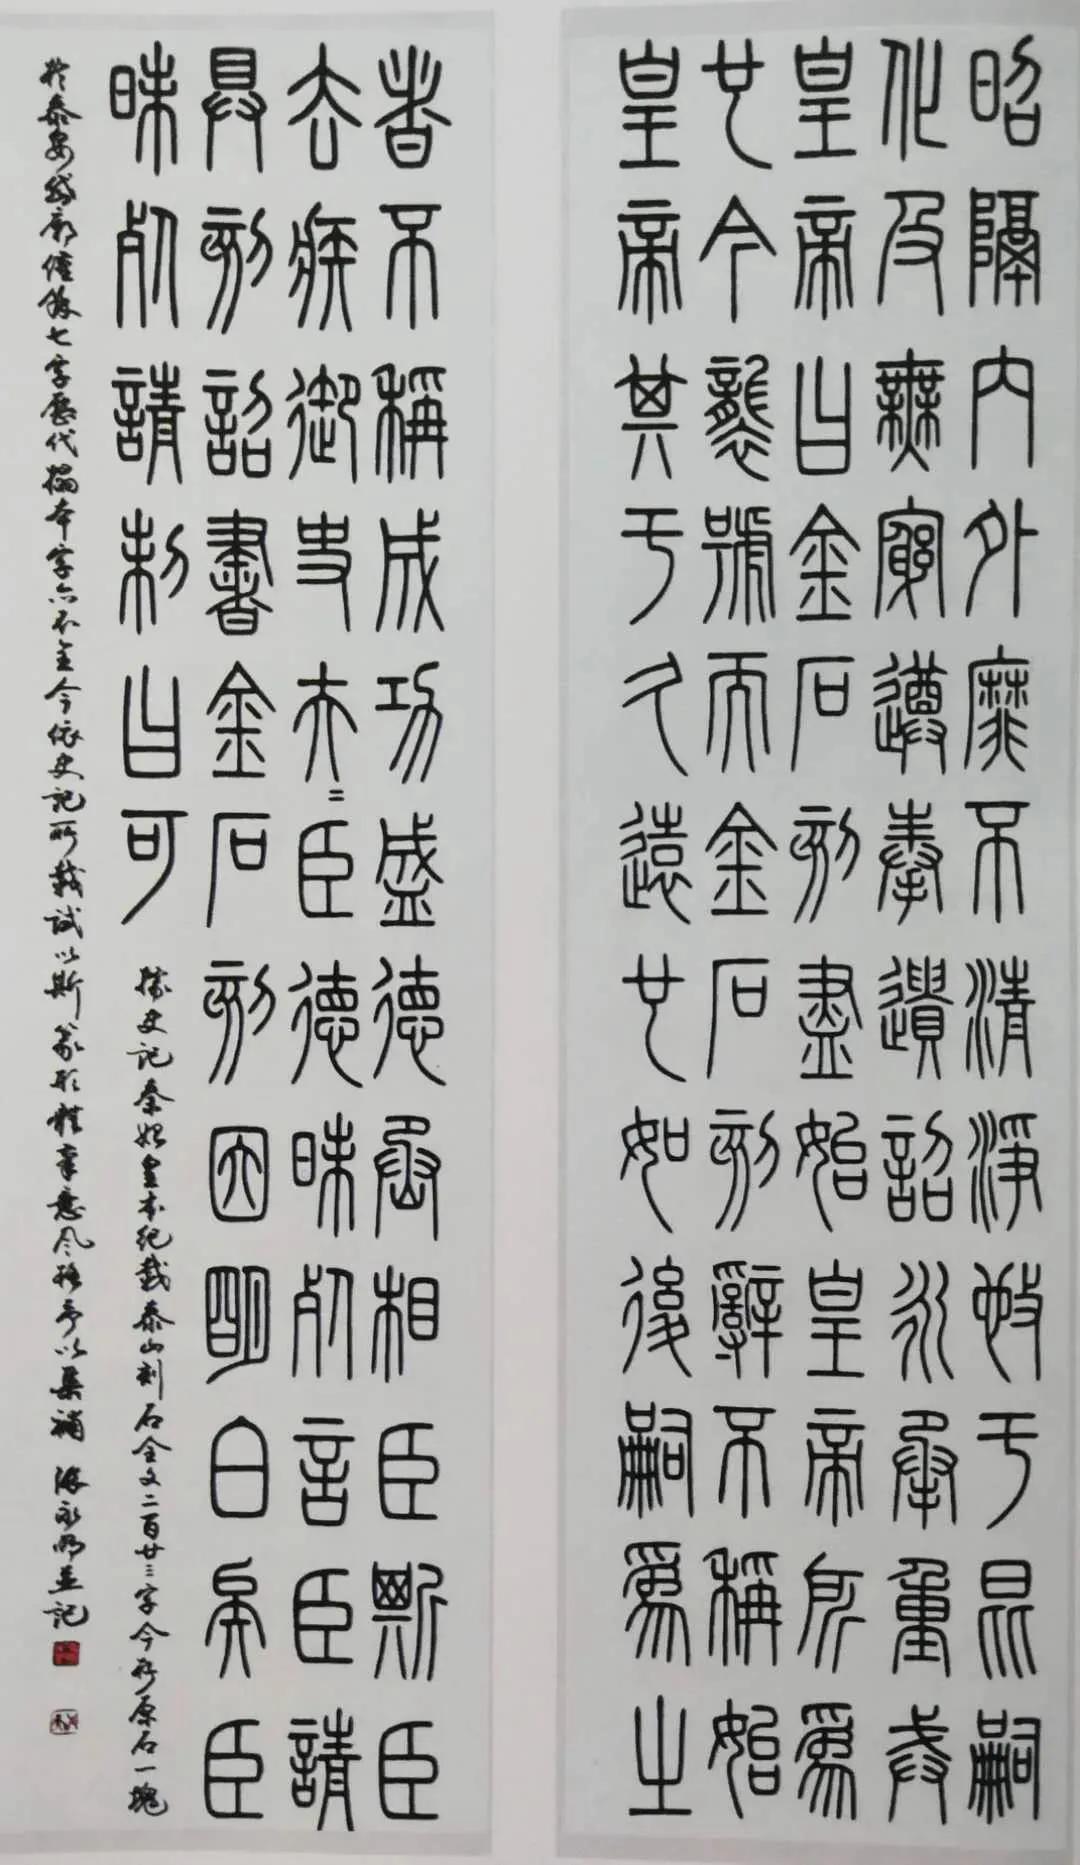 昭隔内外靡不清淨施于昆嗣
化及無窮遵奉遺詔永承重戒
皇帝曰金石刻盡始皇帝所爲
也今襲號而金石刻辭不稱始
皇帝其于久遠也如後嗣爲之
者不稱成功盛德丞相臣斯臣
去疾御史夫=臣德昧死言臣請
具刻詔書金石刻因明白矣臣
昧死請制曰可
據史記秦始皇本紀載泰山刻石全文二百廿三字今存原石一塊
於泰安岱廟僅餘七字歷代搨本字亦不全今依史記所載試以斯篆形體筆意風格予以集補 並記